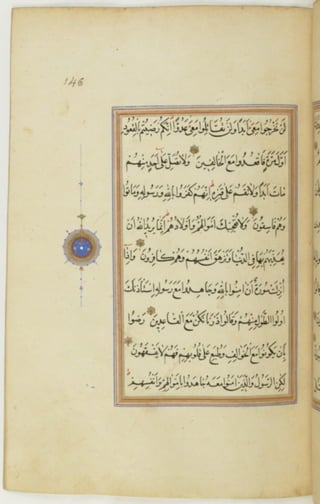 146
لَنْ تَخْرُجُوا مَعِيَ أَبَدًا وَلَنْ تُقَاتِلُوا مَعِيَ عَدُوًّا إِنَّكُمْ رَضِيتُمْ بِالْقُعُودِ
أَوَّلَ مَرَّةٍ فَاقْعُدُوا مَعَ الْخَالِفِينَ وَلَا تُصَلِّ عَلَى أَحَدٍ مِنْهُمْ
مَاتَ أَبَدًا وَلَا تَقُمْ عَلَى قَبْرِهِ إِنَّهُمْ كَفَرُوا بِاللَّهِ وَرَسُولِهِ وَمَاتُوا
وَهُمْ فَاسِقُونَ وَلَا تُعْجِبْكَ أَمْوَالُهُمْ وَأَوْلَادُهُمْ إِنَّمَا يُرِيدُ اللَّهُ أَنْ
يُعَذِّبَهُمْ بِهَا فِي الدُّنْيَا وَتَزْهَقَ أَنْفُسُهُمْ وَهُمْ كَافِرُونَ وَإِذَا
أُنْزِلَتْ سُورَةٌ أَنْ آمِنُوا بِاللَّهِ وَجَاهِدُوا مَعَ رَسُولِهِ اسْتَأْذَنَكَ
أُولُوا الطَّوْلِ مِنْهُمْ وَقَالُوا ذَرْنَا نَكُنْ مَعَ الْقَاعِدِينَ رَضُوا
بِأَنْ يَكُونُوا مَعَ الْخَوَالِفِ وَطُبِعَ عَلَى قُلُوبِهِمْ فَهُمْ لَا يَفْقَهُونَ
لَكِنِ الرَّسُولُ وَالَّذِينَ آمَنُوا مَعَهُ جَاهَدُوا بِأَمْوَالِهِمْ وَأَنْفُسِهِمْ